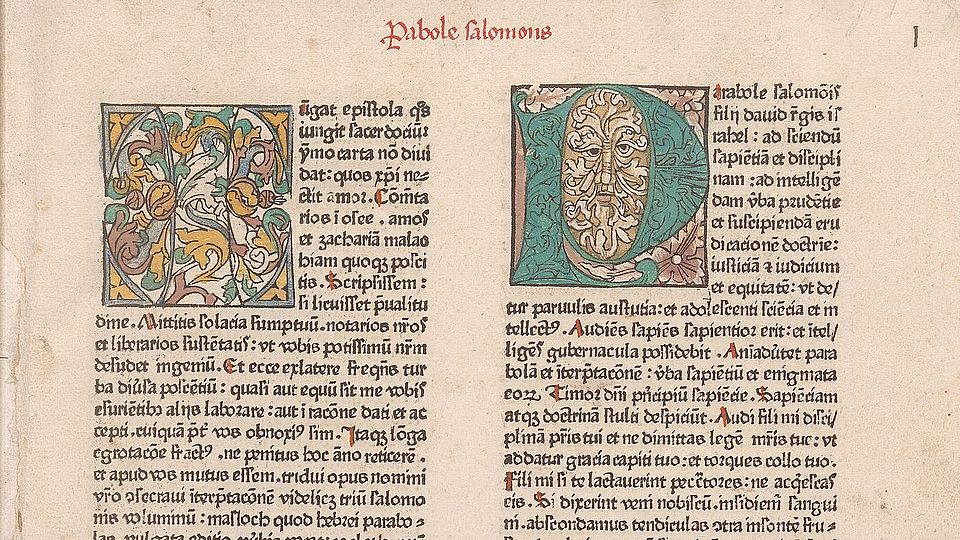 Parabole salomonis
I
ũgat epistola q̃s
iungit sacerdociũ:
ỹmo carta nõ diui
dat: quos xp̃i ne⸗
ctit amor. Cõmẽta
rios i osee . amos
et zachariã malac
hiam quoqȝ posci
tis. Scripsissem:
si licuisset p̃ualitu
dine. Mittitis solacia sumptuũ. notarios nr̃os
et librarios sustẽtatis: vt vobis potissimũ nr̃m
desudet ingeniũ. Et ecce ex latere freq̃ns tur
ba diũsa poscẽtiũ: quasi aut equũ sit me vobis
esuriẽtibꝰ alijs laborare: aut i racõne dati et ac
cepti. cuiquã p̃t̃ vos obnoxiꝰ sim. Itaqȝ lõga
egrotacõe fractꝰ . ne penitus hoc ãno reticerẽ .
et apud vos mutus essem. tridui opus nomini
vr̃o ɔsecraui: iterp̃tacõnẽ videlicȝ triũ salomo
nis voluminũ: masloch quod hebrei parabo⸗
Parabole salomõis
filij dauid r̃gis is
rahel: ad sciendũ
sapiẽtiã et discipli
nam: ad intelligẽ
dam v̂ba prudẽtie
et suscipiendã eru
dicationẽ doctrĩe:
iusticiã ⁊ iudicium
et equitatẽ: vt de/
tur paruulis astutia: et adolescenti sciẽcia et in
tellectꝰ. Audiẽs sapiẽs sapientior erit: et itel/
ligẽs gubernacula possidebit . Aniaduṫet para
bolã et iterp̃tacõnẽ: v̂ba sapiẽtiũ et enigmata
eoꝝ. Timor dñi p̃ncipiũ sapiẽcie. Sapiẽciam
atqȝ doctrinã stulti despiciũt. Audi fili mi disci/
plinã pr̃is tui et ne dimittas legẽ mr̃is tue: vt
addatur gracia capiti tuo: et torques collo tuo.
Fili mi si te lactauerint pecc̃tores: ne acq̃escas
eis. Si dixerint veni nobiscũ. insidiem̃ sangui
ni. abscondamus tendiculas ɔtra insontẽ fru⸗